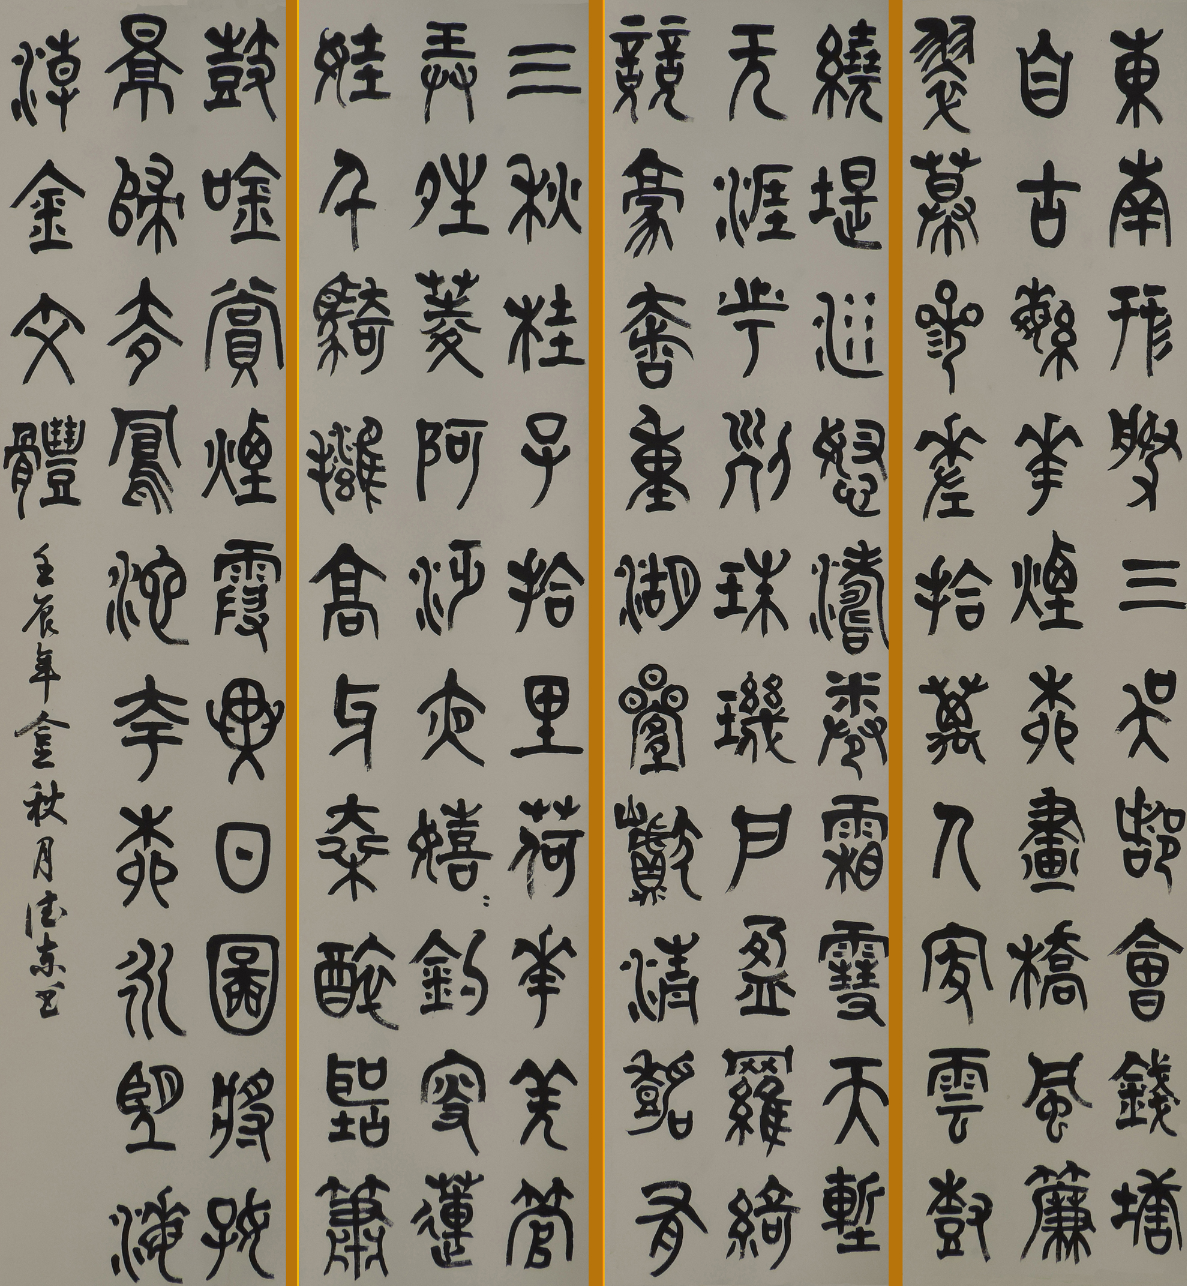 東南形勝三吳都會錢塘
自古繁華煙柳畫橋風簾
翠幕參差拾萬人家雲樹
繞堤沙怒濤卷霜雪天塹
无涯市列珠璣戶盈羅綺
競豪奢重湖疊巘清嘉有
三秋桂子拾里荷華羌管
弄晴菱歌泛夜嬉〻釣叟蓮
娃千騎擁高牙乘醉聽簫
鼓吟賞煙霞異日圖將好
景歸去鳳池夸柳永望海
潮金文體
壬辰年金秋月德東書